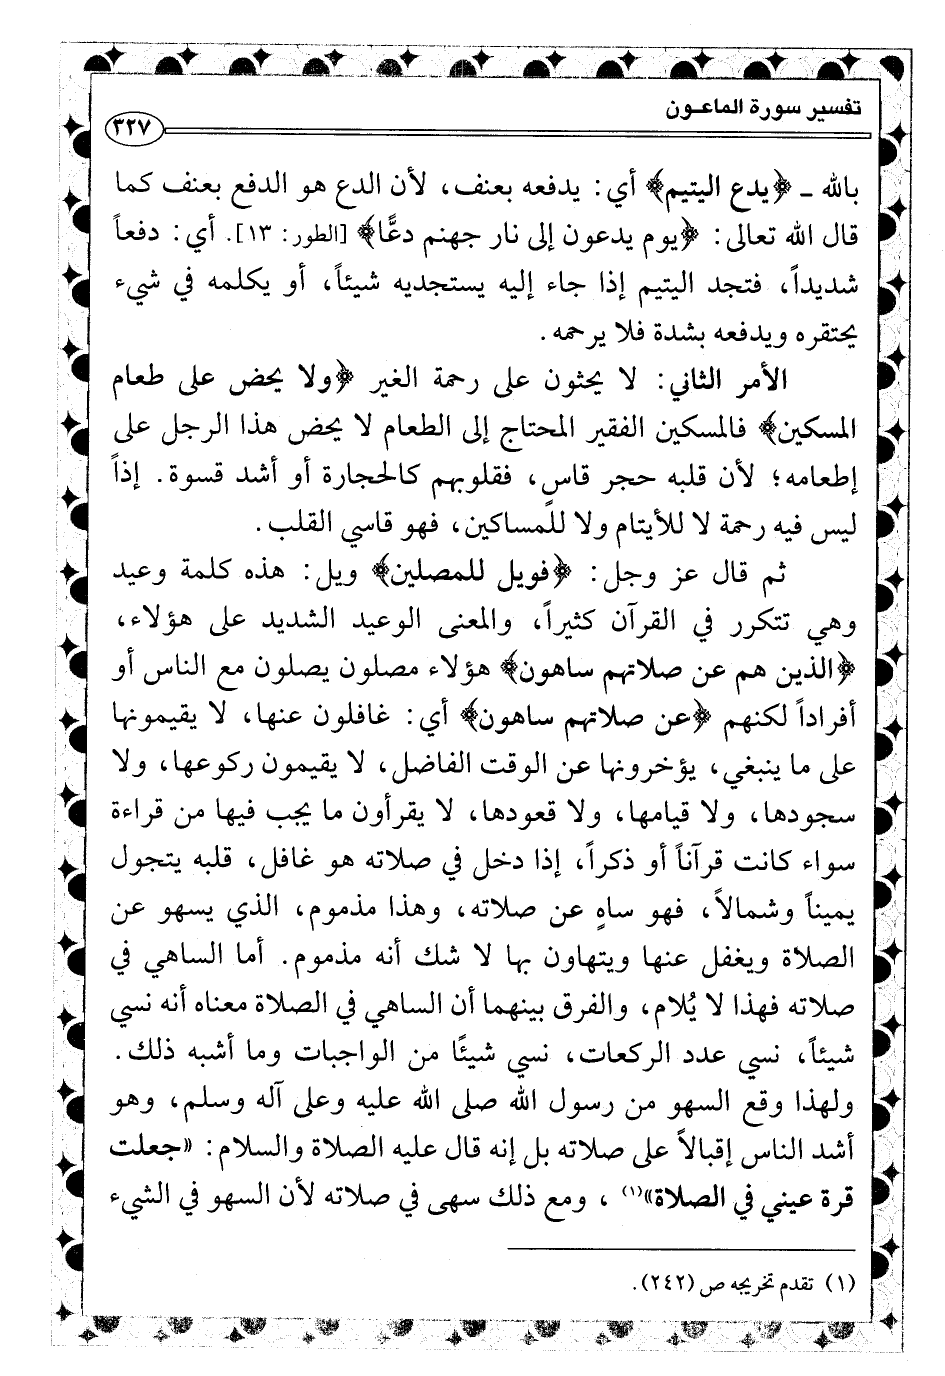 تفسير سورة الماعـون
٣٢٧
بالله ـ ﴿يدع اليتيم﴾ أي: يدفعه بعنف، لأن الدع هو الدفع بعنف كما
قال الله تعالى: ﴿يوم يدعون إلى نار جهنم دعًّا﴾ [الطور: ١٣]. أي: دفعاً
شديداً، فتجد اليتيم إذا جاء إليه يستجديه شيئاً، أو يكلمه في شيء
يحتقره ويدفعه بشدة فلا يرحمه.
الأمر الثاني: لا يحثون على رحمة الغير ﴿ولا يحض على طعام
المسكين﴾ فالمسكين الفقير المحتاج إلى الطعام لا يحض هذا الرجل على
إطعامه؛ لأن قلبه حجر قاسٍ، فقلوبهم كالحجارة أو أشد قسوة. إذاً
ليس فيه رحمة لا للأيتام ولا للمساكين، فهو قاسي القلب.
ثم قال عز وجل: ﴿فويل للمصلين﴾ ويل: هذه كلمة وعيد
وهي تتكرر في القرآن كثيراً، والمعنى الوعيد الشديد على هؤلاء،
﴿الذين هم عن صلاتهم ساهون﴾ هؤلاء مصلون يصلون مع الناس أو
أفراداً لكنهم ﴿عن صلاتهم ساهون﴾ أي: غافلون عنها، لا يقيمونها
على ما ينبغي، يؤخرونها عن الوقت الفاضل، لا يقيمون ركوعها، ولا
سجودها، ولا قيامها، ولا قعودها، لا يقرأون ما يجب فيها من قراءة
سواء كانت قرآناً أو ذكراً، إذا دخل في صلاته هو غافل، قلبه يتجول
يميناً وشمالاً، فهو ساهٍ عن صلاته، وهذا مذموم، الذي يسهو عن
الصلاة ويغفل عنها ويتهاون بها لا شك أنه مذموم. أما الساهي في
صلاته فهذا لا يُلام، والفرق بينهما أن الساهي في الصلاة معناه أنه نسي
شيئاً، نسي عدد الركعات، نسي شيئًا من الواجبات وما أشبه ذلك.
ولهذا وقع السهو من رسول الله صلى الله عليه وعلى آله وسلم، وهو
أشد الناس إقبالاً على صلاته بل إنه قال عليه الصلاة والسلام: «جعلت
قرة عيني في الصلاة»(١)، ومع ذلك سهى في صلاته لأن السهو في الشيء
(١) تقدم تخريجه ص (٢٤٢).